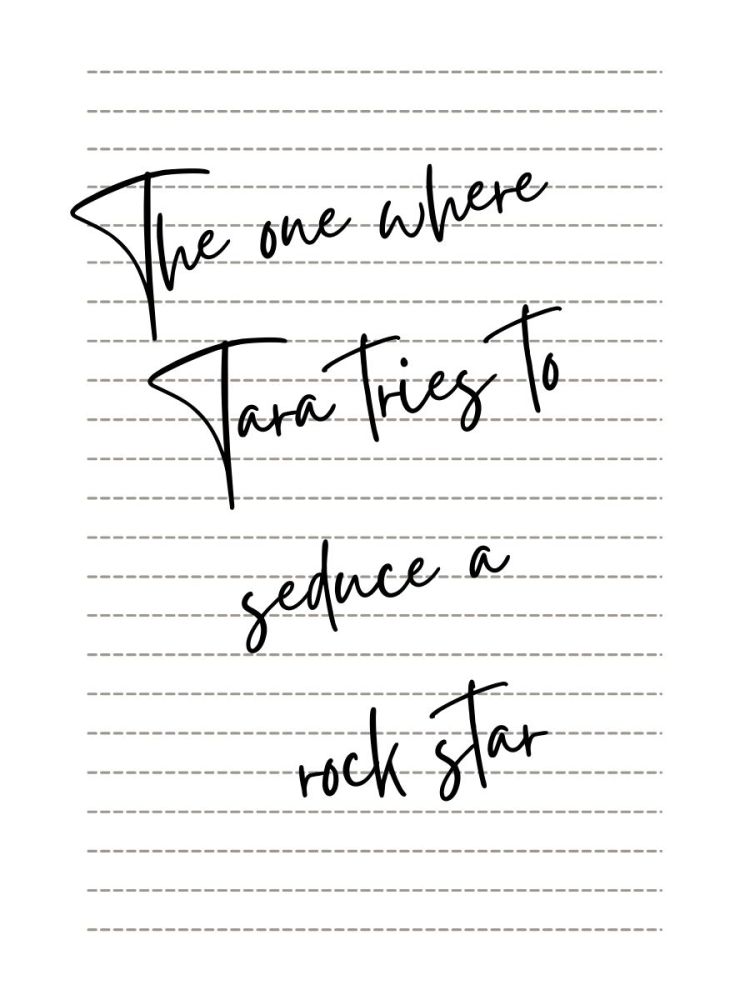 The one where
Tara tries to
seduce a
rock star